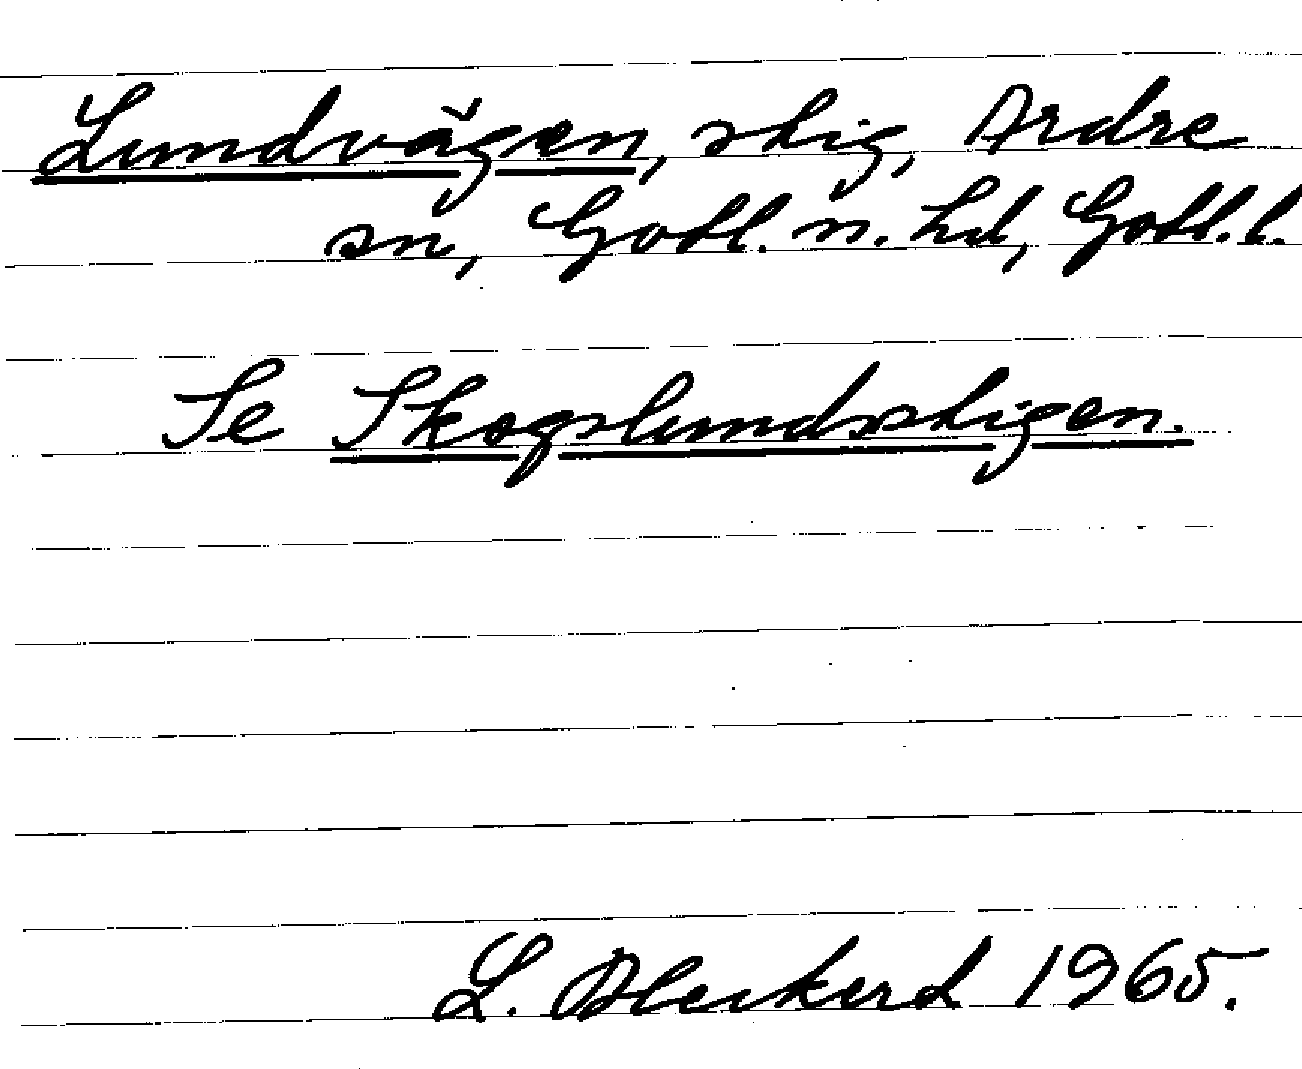 Lundvägen, stig, Ardre
sn, Gotl. n. hd, Gotl. l.
Se Skogslundstigen.
L. Bleckerd 1965.